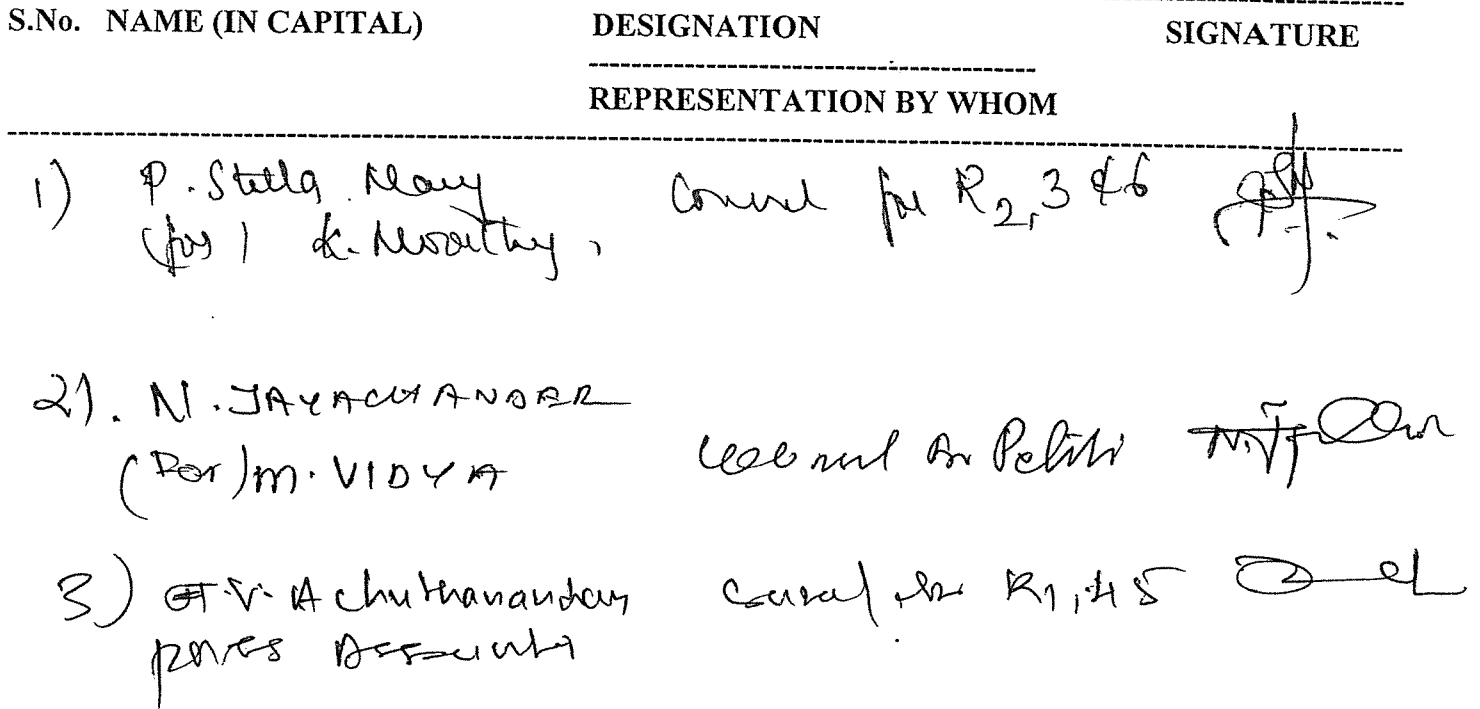 S.No. NAME (IN CAPITAL) DESIGNATION SIGNATURE
REPRESENTATION BY WHOM
1) P. Stella Mary Counsel for R2, 3 & 6
(for) K. Moorthy,
2). N. JAYACHANDER
(For) M. VIDYA Counsel for
3) G.V. Achuthanandan Counsel for R1, 4 5